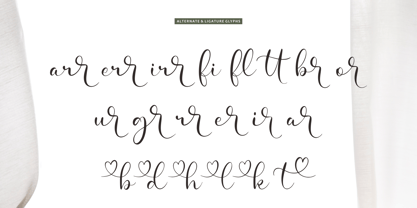 ALTERNATE & LIGATURE GLYPHS
arr err irr fi fl tt br or
ur gr rr er ir ar
b d h l k t